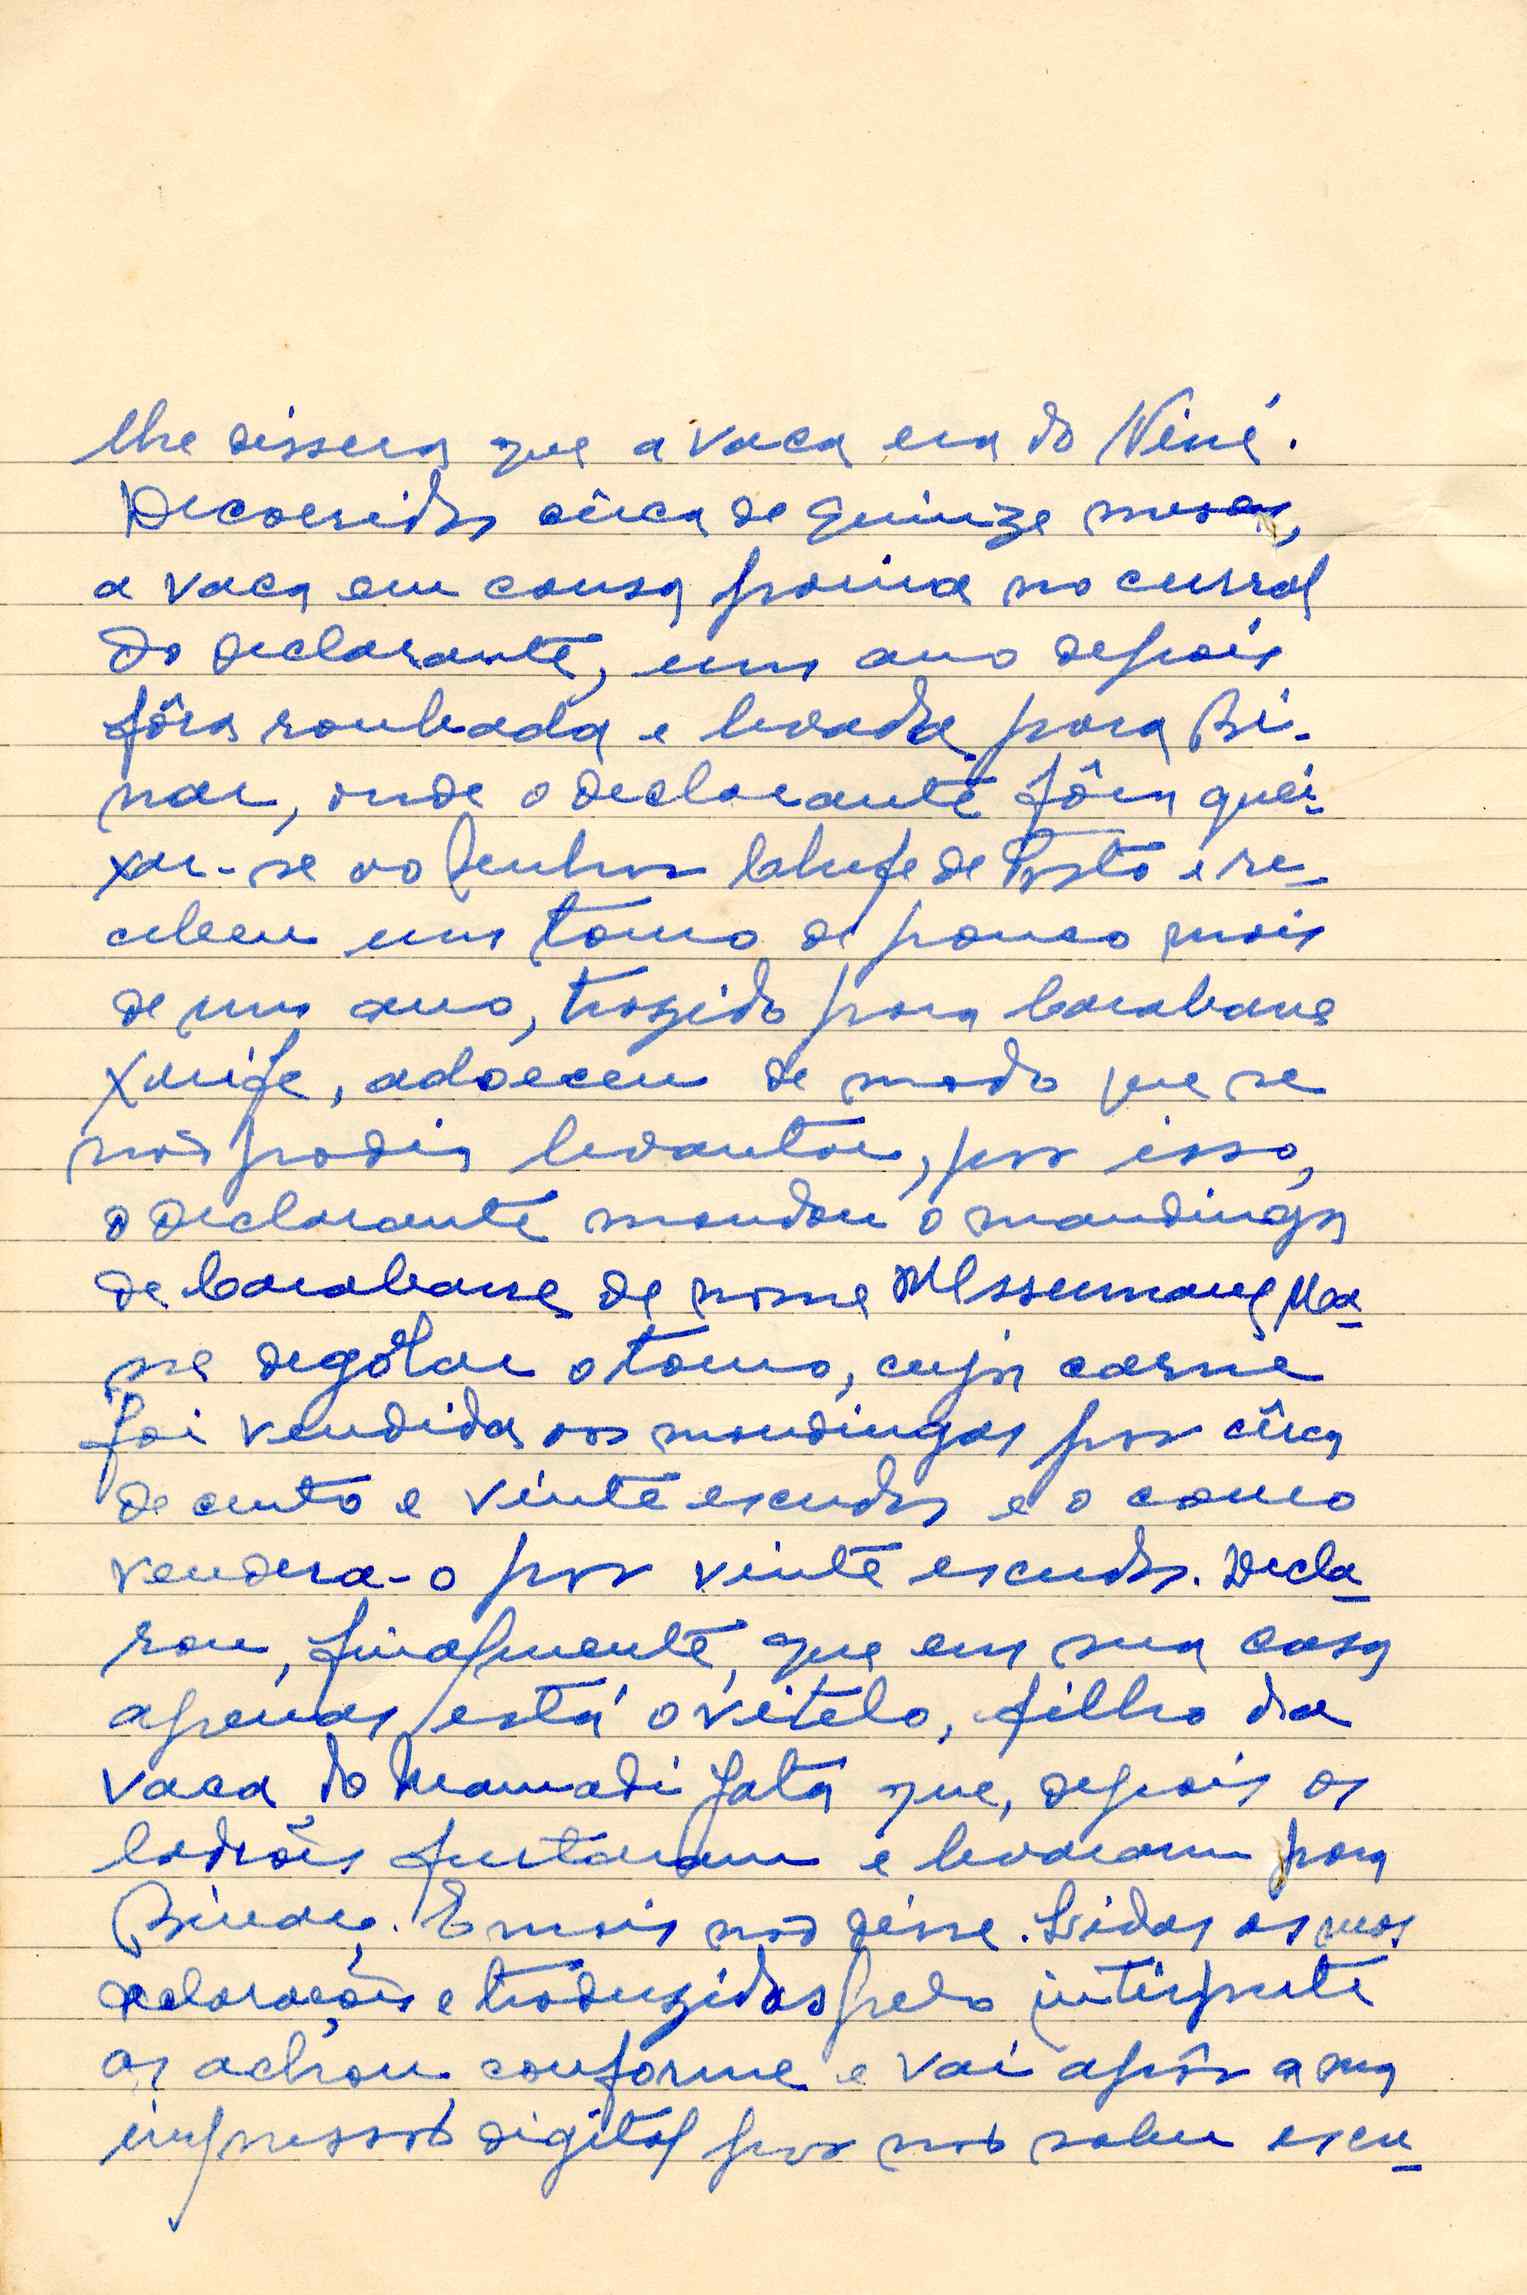 lhe dissera que a vaca era do Niné.
Decorridos cêrca de quinze meses,
a vaca em causa parira no curral
do declarante, um ano depois
fôra roubada e levada para Bi-
nar, onde o declarante fôra quei-
xar-se ao Senhor Chefe de Posto e re-
cebeu um touro de pouco mais
de um ano, trazido para Carabane
Xerife, adoeceu de modo que se
não podia levantar, por isso,
o declarante mandou o mandinga
de Carabane de nome Ma-
ne degolar o touro, cuja carne
foi vendida aos mandingas por cêrca
de cento e vinte escudos e o couro
vendera-o por vinte escudos. Decla-
rou, finalmente, que em sua casa
apenas está o vitelo, filho da
vaca do Mamadi Jatá que, depois os
ladrões furtaram e levaram para
Binar. E mais não disse. Lidas as suas
declarações e traduzidas pelo intérprete
as achou conforme e vai apôr a sua
impressão digital por não saber escre-